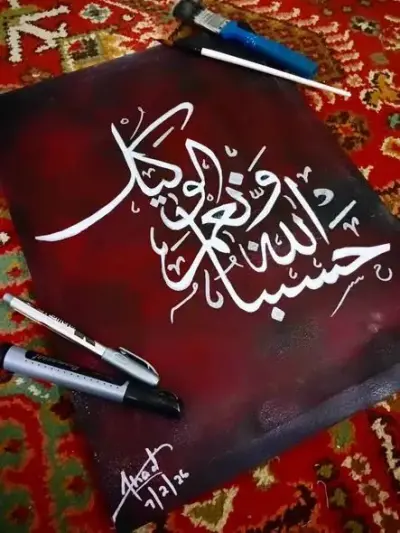 حسبنا الله ونعم الوكيل
7/2/26